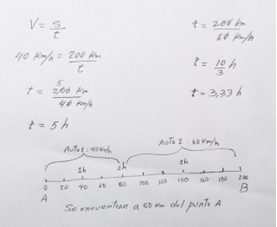 V = S/t
40 Km/h = 200 Km/t
t = 200 km/40 km/h
5
t = 5 h
t = 200 km/60 km/h
t = 10/3 h
t = 3,33 h
Auto 1: 40 Km/h Auto 2: 60 Km/h
1h 2h 1h
0 20 40 60 80 100 120 140 160 180 200
A B
Se encuentran a 80 Km del punto A